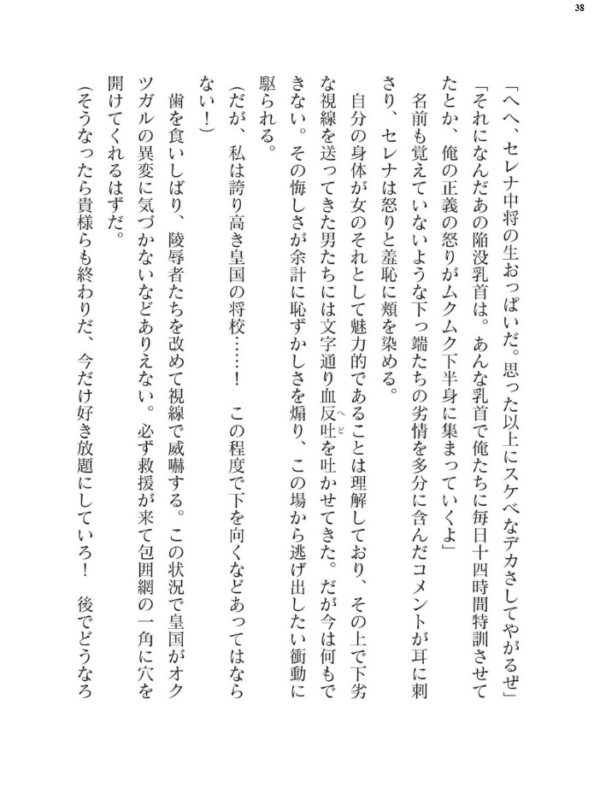 38
「へへ、セレナ中将の生おっぱいだ。思った以上にスケベなデカさしてやがるぜ」
「それになんだあの陥没乳首は。あんな乳首で俺たちに毎日十四時間特訓させて
たとか、俺の正義の怒りがムクムク下半身に集まっていくよ」
　名前も覚えていないような下っ端たちの劣情を多分に含んだコメントが耳に刺
さり、セレナは怒りと羞恥に頬を染める。
　自分の身体が女のそれとして魅力的であることは理解しており、その上で下劣
な視線を送ってきた男たちには文字通り血反吐を吐かせてきた。だが今は何もで
きない。その悔しさが余計に恥ずかしさを煽り、この場から逃げ出したい衝動に
駆られる。
（だが、私は誇り高き皇国の将校……！　この程度で下を向くなどあってはなら
ない！）
　歯を食いしばり、陵辱者たちを改めて視線で威嚇する。この状況で皇国がオク
ツガルの異変に気づかないなどありえない。必ず救援が来て包囲網の一角に穴を
開けてくれるはずだ。
（そうなったら貴様らも終わりだ、今だけ好き放題にしていろ！　後でどうなろ